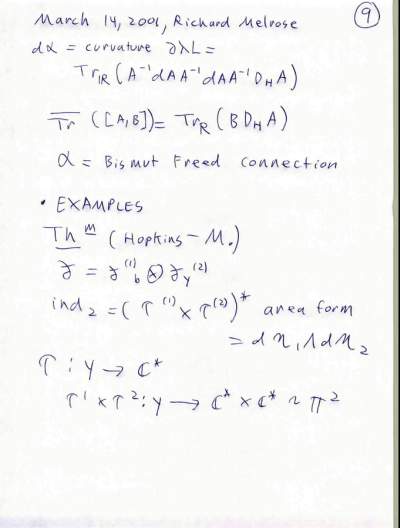 ⑨
March 14, 2001, Richard Melrose
dα = curvature ∂λL =
Tr_R (A⁻¹dAA⁻¹dAA⁻¹D_H A)
T̅r̅ ([A,B]) = Tr_R (B D_H A)
α = Bismut Freed connection
• EXAMPLES
Thᵐ (Hopkins-M.)
𝓏 = 𝓏_b⁽¹⁾ ⊗ 𝓏_y⁽²⁾
ind₂ = (τ⁽¹⁾ × τ⁽²⁾)* area form
= dη₁ ∧ dη₂
τ : Y → ℂ*
τ¹ × τ² : Y → ℂ* × ℂ* ~ 𝕋²